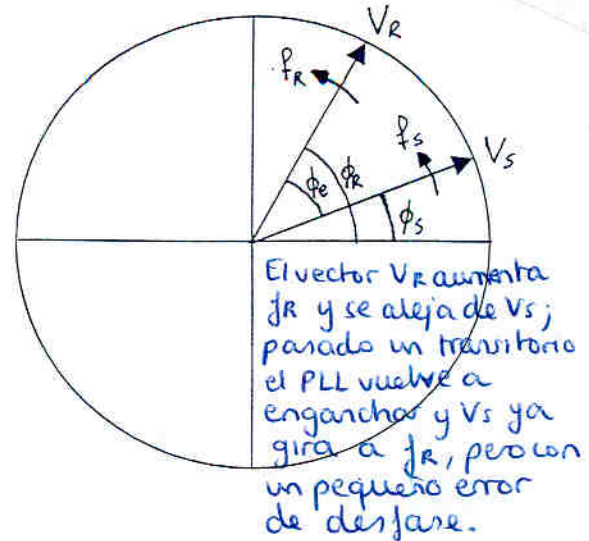 V_R
f_R
f_S
V_S
ϕ_e
ϕ_R
ϕ_S
El vector V_R aumenta
f_R y se aleja de V_S;
pasado un transitorio
el PLL vuelve a
enganchar y V_S ya
gira a f_R, pero con
un pequeño error
de desfase.